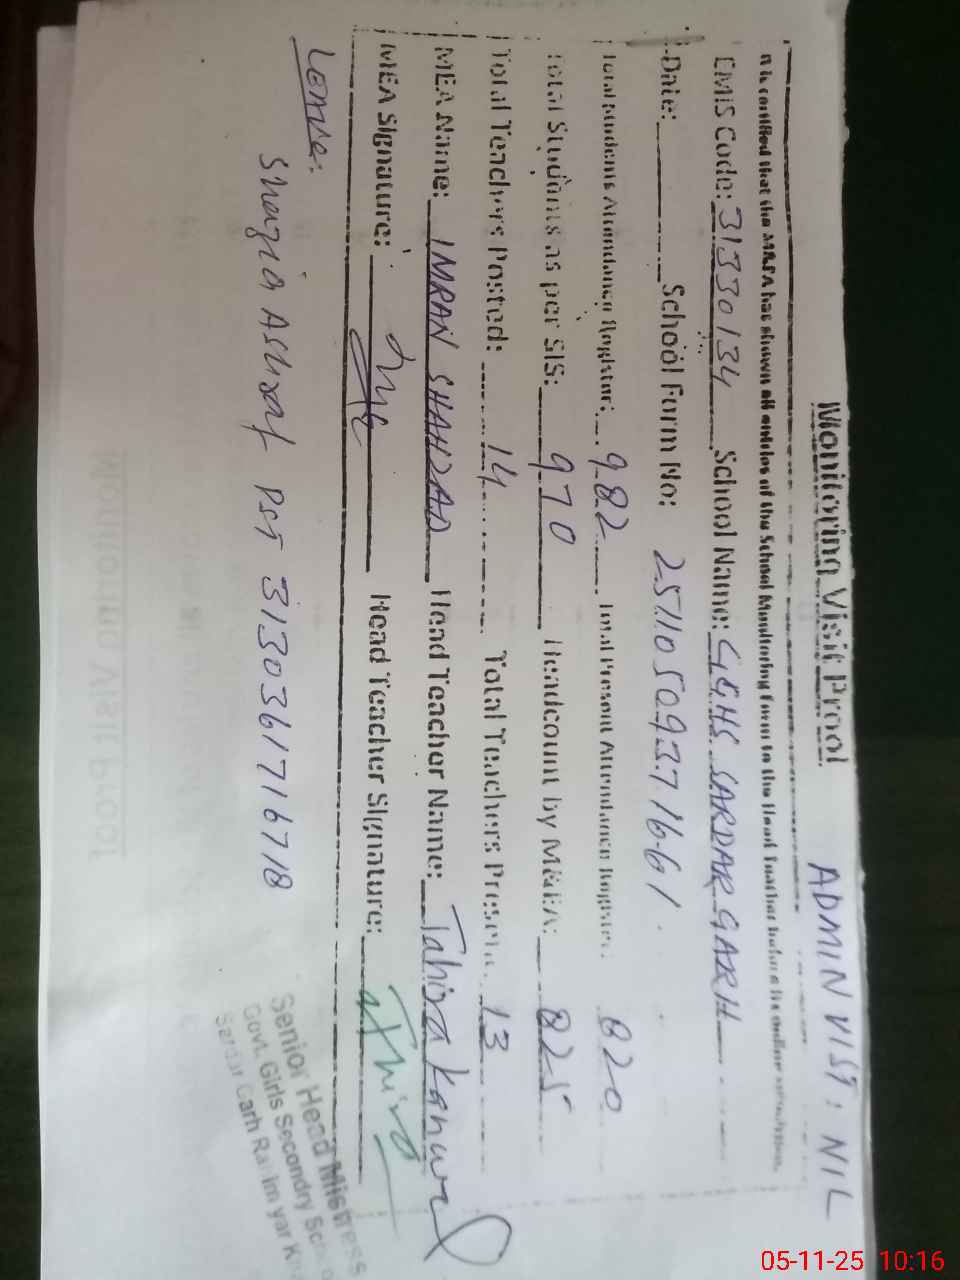 Monitoring Visit Proof
ADMIN VIST: NIL
It is certified that the M&EA has shown all entries of the School Monitoring form to the Head Teacher before its online submission.
EMIS Code: 31330134 School Name: GGHS SARDAR GARH
Date: School Form No: 25110509371661
Total Students Attendance Register: 982 Total Present Attendance Register: 820
Total Students as per SIS: 970 Headcount by M&EA: 825
Total Teachers Posted: 14 Total Teachers Present: 13
MEA Name: IMRAN SHAHZAD Head Teacher Name: Tahira Kanwal
MEA Signature: Head Teacher Signature:
Leave:
Shazia Ashraf PST 3130361716718
Senior Head Mistress
Govt. Girls Secondry School
Sardar Garh Rahim yar Khan
05-11-25 10:16